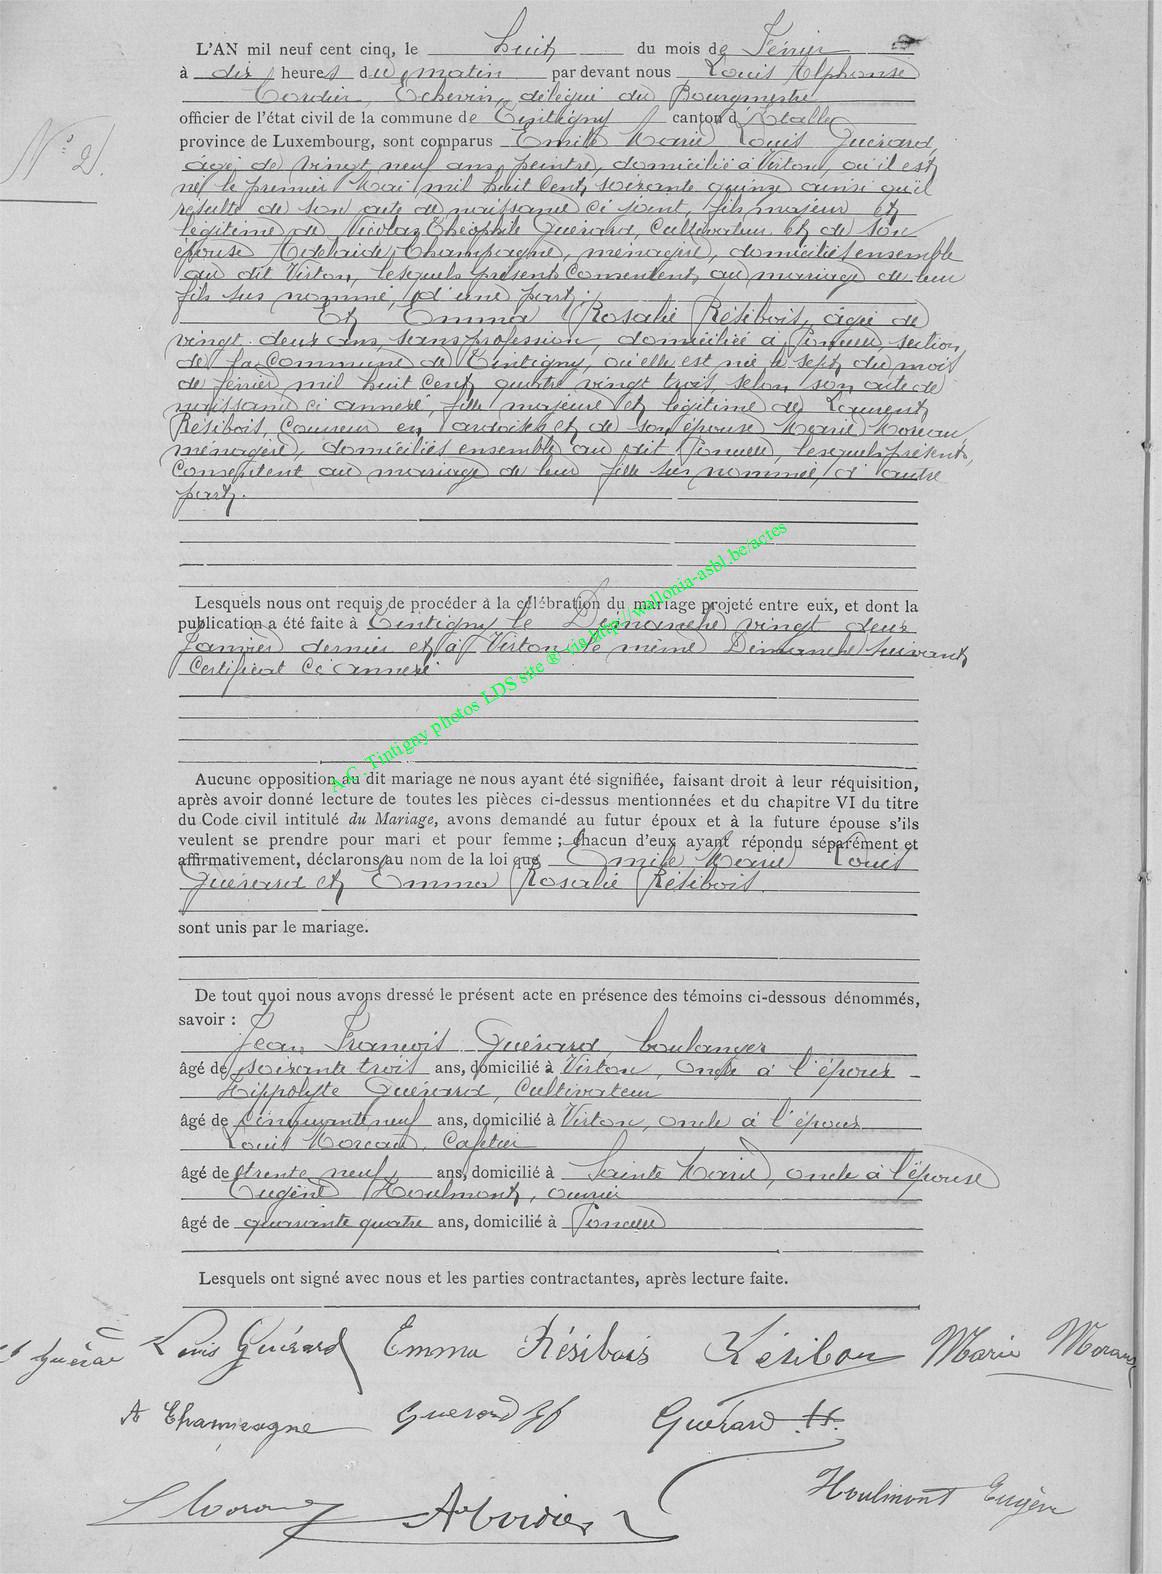 L'AN mil neuf cent cinq, le huit du mois de Février
à dix heures du matin par devant nous Louis Alphonse
Cordier, Echevin délégué du Bourgmestre
officier de l'état civil de la commune de Tintigny canton d'Etalle
province de Luxembourg, sont comparus Emile Marie Louis Guérard,
âgé de vingt neuf ans, peintre, domicilié à Virton, où il est
né le premier Mai mil huit cent soixante quinze ainsi qu'il
résulte de son acte de naissance ci joint, fils majeur et
légitime de Nicolas Théophile Guérard, Cultivateur et de son
épouse Adelaïde Champagne, ménagère, domiciliés ensemble
au dit Virton, lesquels présents consentent au mariage de leur
fils sus nommé, d'une part;
Et Emma Rosalie Résibois, âgée de
vingt deux ans, sans profession, domiciliée à Poncelle, section
de la commune de Tintigny, où elle est née le sept du mois
de février mil huit cent quatre vingt trois, selon son acte de
naissance ci annexé, fille majeure et légitime de Laurent
Résibois, Couvreur en ardoises et de son épouse Marie Moreau,
ménagère, domiciliés ensemble au dit Poncelle, lesquels présents,
Consentent au mariage de leur fille sus nommée, d'autre
part.
Lesquels nous ont requis de procéder à la célébration du mariage projeté entre eux, et dont la
publication a été faite à Tintigny le Dimanche vingt deux
Janvier dernier et à Virton le même Dimanche suivant
Certificat Ci annexé
A.C. Tintigny photos LDS site ® via http://wallonia-asbl.be/actes
Aucune opposition au dit mariage ne nous ayant été signifiée, faisant droit à leur réquisition,
après avoir donné lecture de toutes les pièces ci-dessus mentionnées et du chapitre VI du titre
du Code civil intitulé du Mariage, avons demandé au futur époux et à la future épouse s'ils
veulent se prendre pour mari et pour femme ; chacun d'eux ayant répondu séparément et
affirmativement, déclarons au nom de la loi que Emile Marie Louis
Guérard et Emma Rosalie Résibois.
sont unis par le mariage.
De tout quoi nous avons dressé le présent acte en présence des témoins ci-dessous dénommés,
savoir :
Jean François Guérard, boulanger
âgé de soixante trois ans, domicilié à Virton, oncle à l'époux
Hippolyte Guérard, Cultivateur
âgé de cinquante neuf ans, domicilié à Virton, oncle à l'époux
Louis Moreau, Cafetier
âgé de trente neuf ans, domicilié à Sainte Marie, oncle à l'épouse
Eugène Houlmont, ouvrier
âgé de quarante quatre ans, domicilié à Poncelle
Lesquels ont signé avec nous et les parties contractantes, après lecture faite.
Nº 2.
Louis Guérard Emma Résibois Résibois Marie Moreau
A Champagne Guerard JF Guérard H.
L Moreau A Cordier Houlmont Eugène